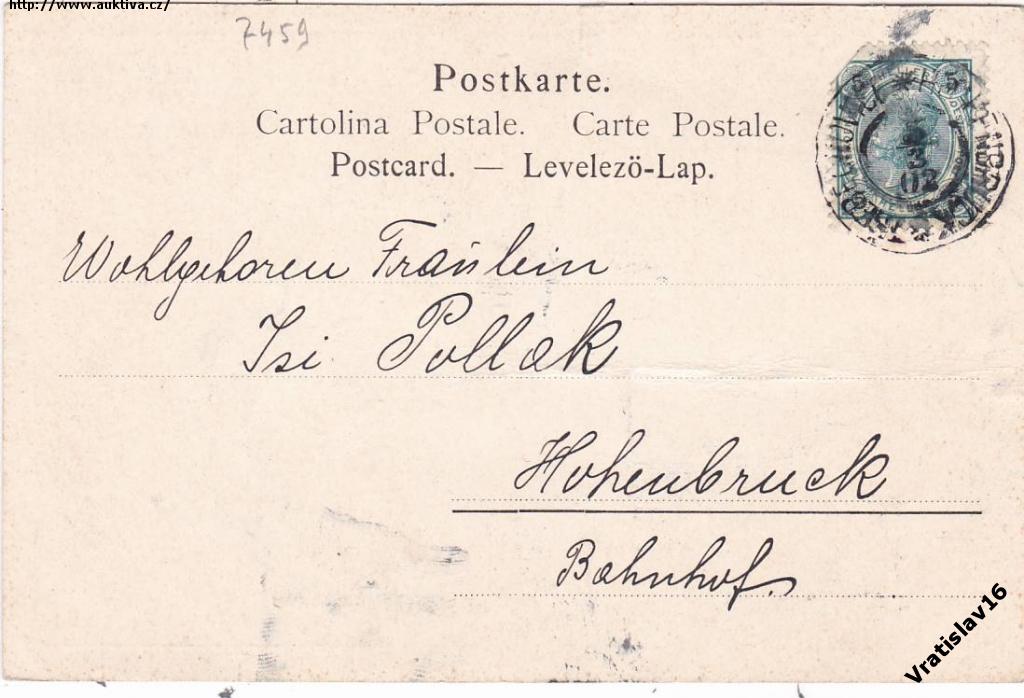 http://www.auktiva.cz/
7459
Postkarte.
Cartolina Postale. Carte Postale.
Postcard. — Levelezö-Lap.
5 5
3
02
Wohlgeboren Fräulein
Isi Pollak
Hohenbruck
Bahnhof.
Vratislav16